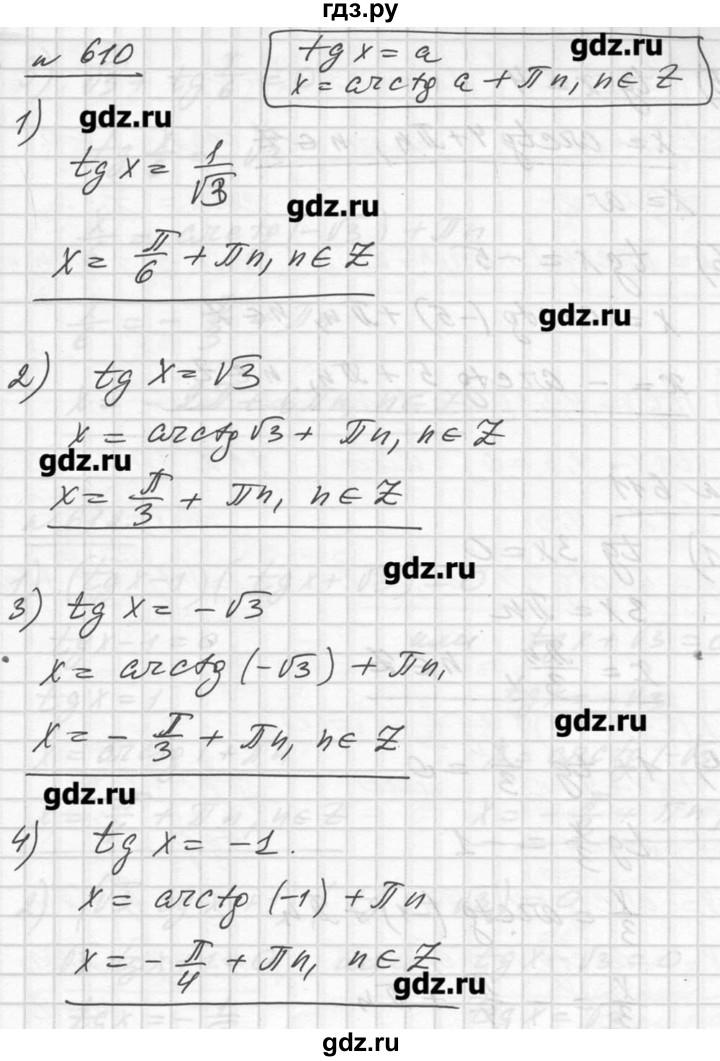 гдз.ру
№ 610
tg x = a
gdz.ru
x = arctg a + πn, n ∈ Z
1)
gdz.ru
tg x = 1/√3
gdz.ru
x = π/6 + πn, n ∈ Z
gdz.ru
2) tg x = √3
x = arctg √3 + πn, n ∈ Z
gdz.ru
x = π/3 + πn, n ∈ Z
gdz.ru
3) tg x = -√3
x = arctg (-√3) + πn,
x = - π/3 + πn, n ∈ Z
gdz.ru
gdz.ru
4) tg x = -1.
x = arctg (-1) + πn
x = - π/4 + πn, n ∈ Z
gdz.ru
gdz.ru